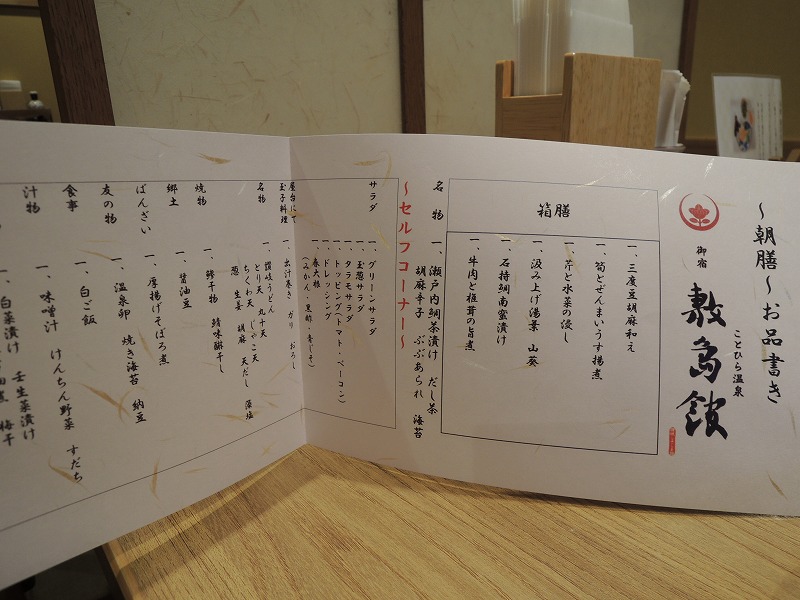 ～朝膳～お品書き
ことひら温泉
御宿
敷島館
箱膳
一、三度豆胡麻和え
一、筍とぜんまいうす揚煮
一、芹と水菜の浸し
一、汲み上げ湯葉　山葵
一、石持鯛南蛮漬け
一、牛肉と椎茸の旨煮
名物
一、瀬戸内鯛茶漬け　だし茶
胡麻辛子　ぶぶあられ　海苔
～セルフコーナー～
サラダ
一、グリーンサラダ
一、玉葱サラダ
一、タラモサラダ
一、トッピング(トマト・ベーコン)
一、ドレッシング
一、春大根
(みかん　黒酢・青じそ)
屋台にて
玉子料理
一、出汁巻き　ガリ　おろし
名物
一、讃岐うどん
とり天　丸十天
ちくわ天　じゃこ天
葱　生姜　胡麻　天だし　藻塩
焼物
一、鯵干物　鯖味醂干し
郷土
一、醤油豆
ばんざい
一、厚揚げそぼろ煮
友の物
一、温泉卵　焼き海苔　納豆
食事
一、白ご飯
汁物
一、味噌汁　けんちん野菜　すだち
一、白菜漬け　壬生菜漬け
梅干